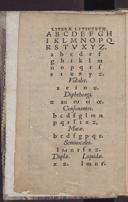 LITERÆ LATINORUM.
A B C D E F G H
I K L M N O P Q
R S T V X Y Z.
a b c d e f
g h i k l m
n o p q r s
t u x y z.
Vocales.
a e i o u.
Diphthongi.
Consonantes.
b c d f g l m n
p q r s t x z.
Mutæ.
b c d f g p q t.
Semivocales.
l m n r s x z.
Duplæ. Liquidæ.
x z. l m n r.